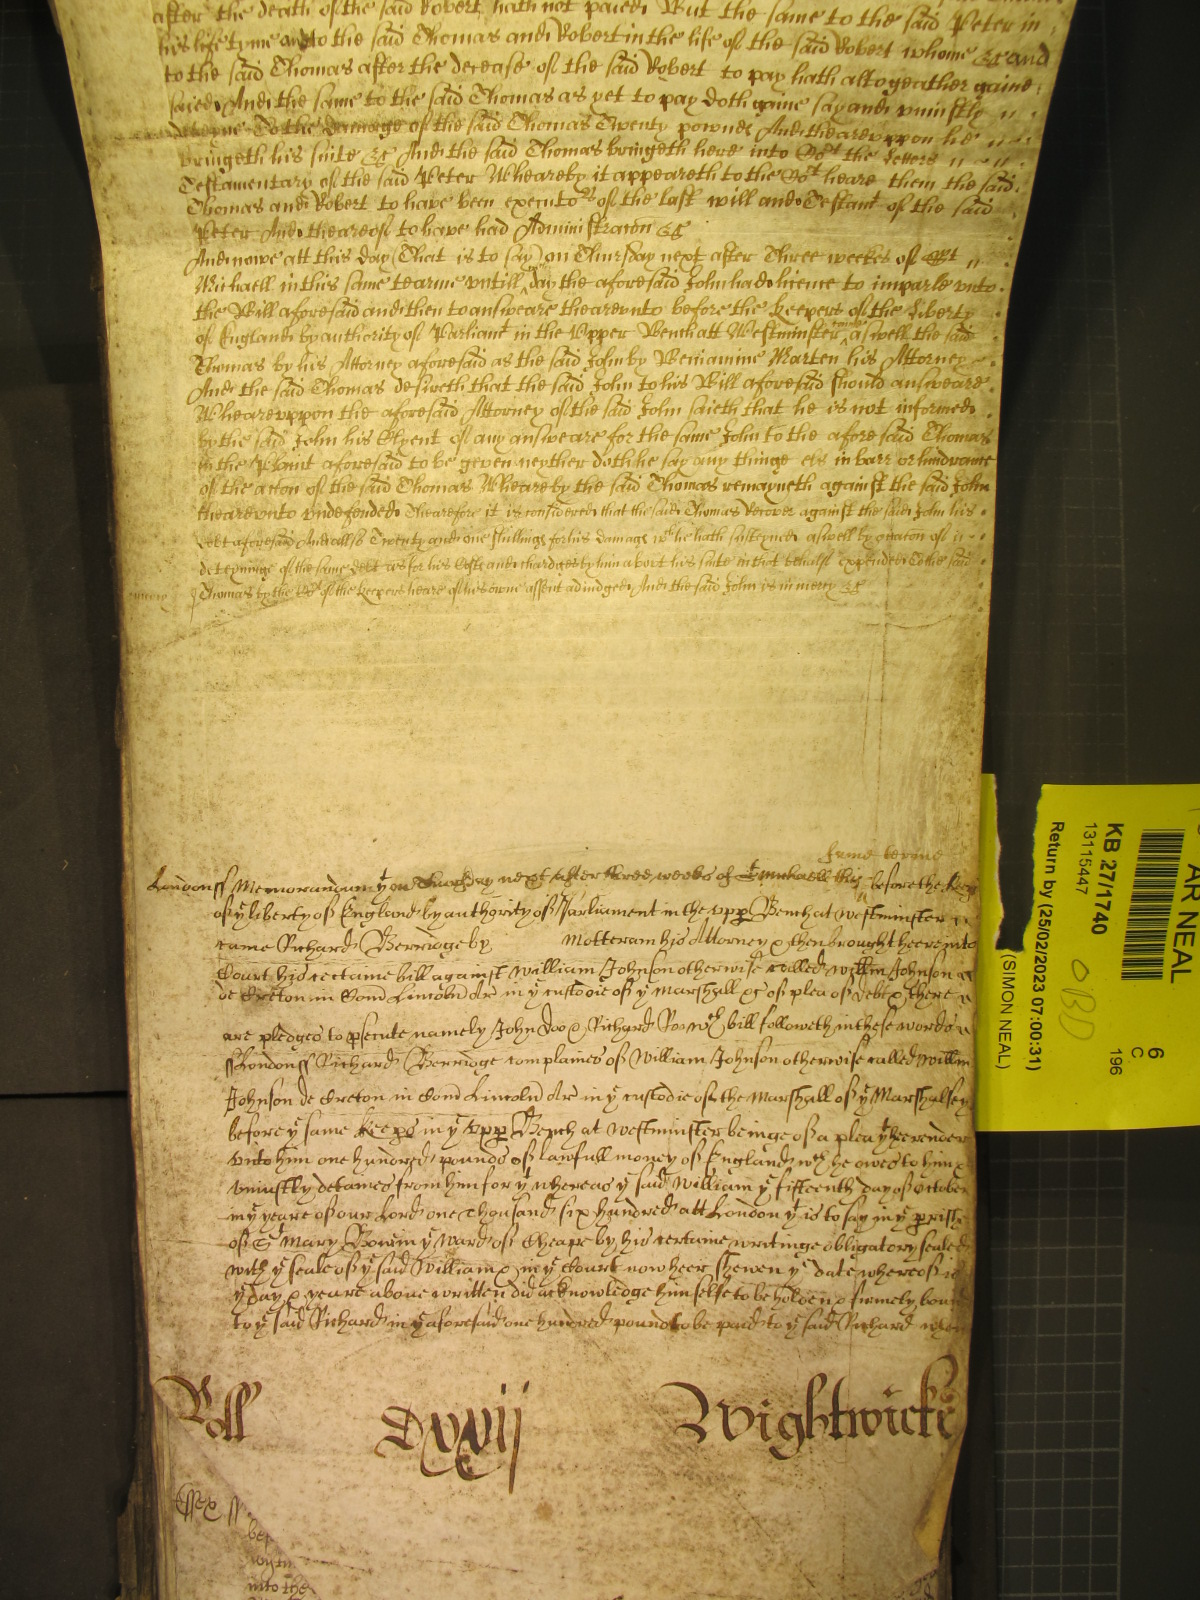 after the death of the said Robert hath not paied But the same to the said Peter in
his life tyme and to the said Thomas and Robert in the life of the said Robert whome &c and
to the said Thomas after the decease of the said Robert to pay hath altogeather gaine
saied And the same to the said Thomas as yet to pay doth gaine say and uniustly
deteyne To the damage of the said Thomas Twenty pownds And theareuppon hee
bringeth his suite &c And the said Thomas bringeth here into Cort the Letters
Testamentary of the said Peter Wheareby it appeareth to the Cort heare them the said
Thomas and Robert to have been executors of the last will and Testamt of the said
Peter And theareof to have had Administracon &c
And nowe att this day (That is to say) on Thursday next after Three weekes of St
Michaell in this same tearme untill wch day the aforesaid John had licence to imparle unto
the Bill aforesaid and then to answeare theareunto before the keepers of the Liberty
of England by authority of Parliamt in the Upper Bench att Westminster came aswell the said
Thomas by his Attorney aforesaid as the said John by Beniamine Marten his Attorney
And the said Thomas desireth that the said John to his Bill aforesaid should answeare
Wheareuppon the aforesaid Attorney of the said John saieth that he is not informed
by the said John his Clyent of any answeare for the same John to the aforesaid Thomas
in the Plaint aforesaid to be geven neyther doth he say any thinge els in barr or hindrance
of the acton of the said Thomas Wheareby the said Thomas remayneth against the said John
theareunto undefended Thearefore it is considered that the said Thomas Recover against the said John his
Debt aforesaid And allso Twenty and one shillings for his damages wch he hath susteyned aswell by occacon of
deteyninge of the same Debt as for his Costs and chardges by him about his suite in that behalf expended to the said
mercy Thomas by the Cort of the keepers heare of his owne assent adiudged And the said John is in mercy &c
same terme
London ss Memorandum yt on Thursday next after three weekes of St Michaell this before the Keeps
of ye liberty of England by authority of Parliament in the upp Bench at Westminster
came Richard Berridge by Motteram his Attorney & then brought heere into
Court his certaine bill against William Johnson otherwise called Willm Johnson
de Kreton in Com Lincoln Ar in ye custodie of ye Marshall &c of plea of debt & there
are pledges to psecute namely John Doo & Richard Roo wch bill followeth in these words
ss London ss Richard Berridge complaines of William Johnson otherwise called Willm
Johnson de Kreton in Com Lincoln Ar in ye custodie of the Marshall of ye Marshalsey
before ye same keeps in ye upp Bench at Westminster beinge of a plea yt hee render
unto him one hundred pounds of lawfull money of England wch he owes to him &
uniustly detaines from him for yt whereas ye said William ye fifteenth day of October
in ye yeare of our Lord one thousand six hundred att London yt is to say in ye parish
of St Mary Bow in ye Ward of Cheape by his certaine writinge obligatory sealed
with ye seale of ye said William & in ye Court now heer shewen ye date whereof is
ye day & yeare above written did acknowledge himselfe to be holden & firmely bound
to ye said Richard in ye aforesaid one hundred pounds to be paid to ye said Richard when
Roll Dxxij Wightwicke
Essex ss
into the
AR NEAL
KB 27/1740
13115447
Return by (25/02/2023 07:00:31)
(SIMON NEAL)
OBD
196
C
6